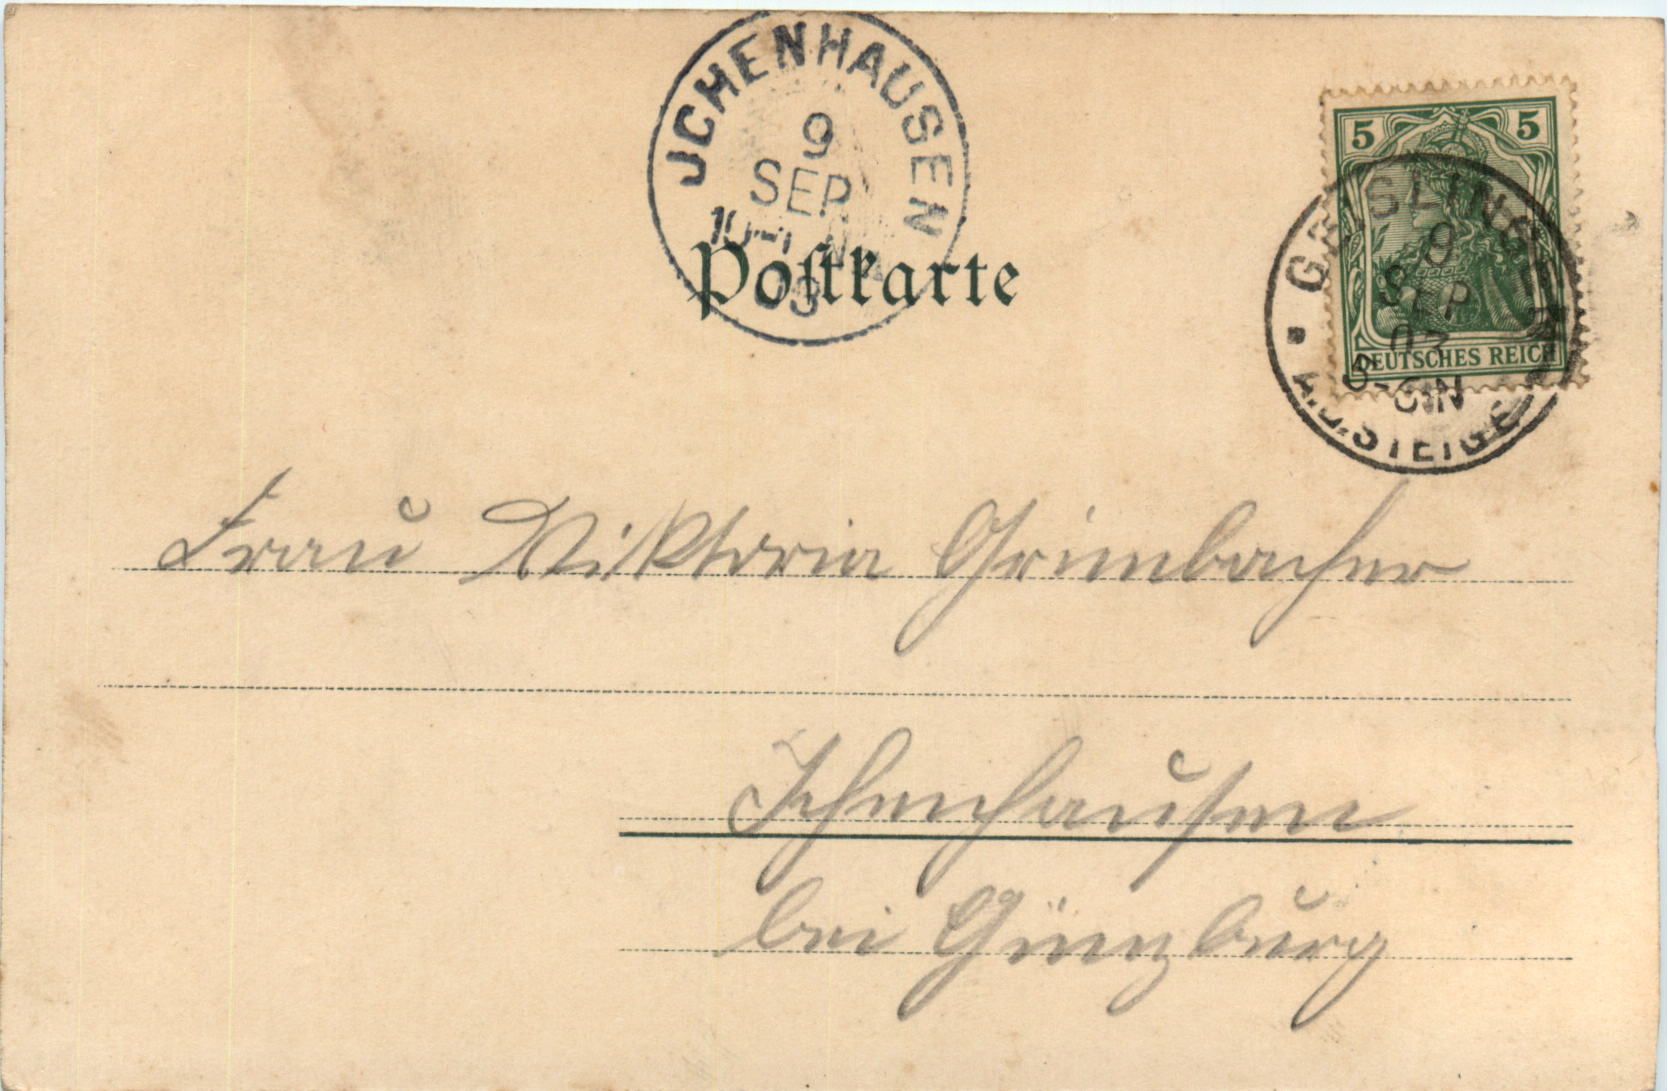 JCHENHAUSEN
9
SEP
03
Postkarte
5 5
DEUTSCHES REICH
GEISLINGEN
9
SEP
03
A.D.STEIGE
Frau Viktoria Grimbacher
Ichenhausen
bei Günzburg